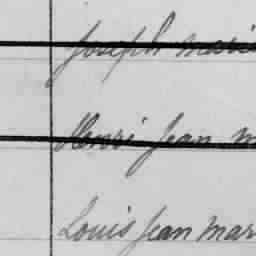 Joseph Marie
Henri Jean M
Louis Jean Mar